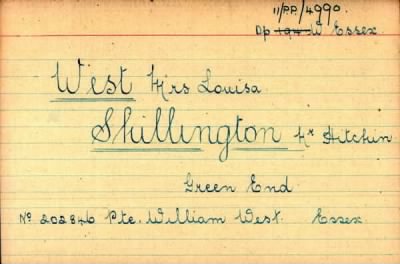 11/PP/4990.
Dp 194 W Essex.
West Mrs Louisa.
Shillington Nr Hitchin
Green End
No 202846 Pte. William West. Essex.